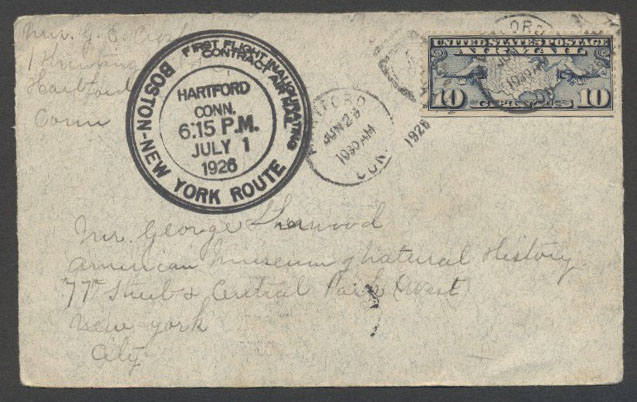 Mr. G. E.
1 Hunting
Hartford
Conn
FIRST FLIGHT INAUGURATING
CONTRACT AIR MAIL
BOSTON-NEW YORK ROUTE
HARTFORD
CONN.
6:15 P.M.
JULY 1
1926
HARTFORD
JUN 29
1030 AM
CONN.
1926
UNITED STATES POSTAGE
AIR MAIL
10 CENTS 10
Mr. George Sherwood
American Museum of Natural History
77th Street & Central Park (West)
New-York
City